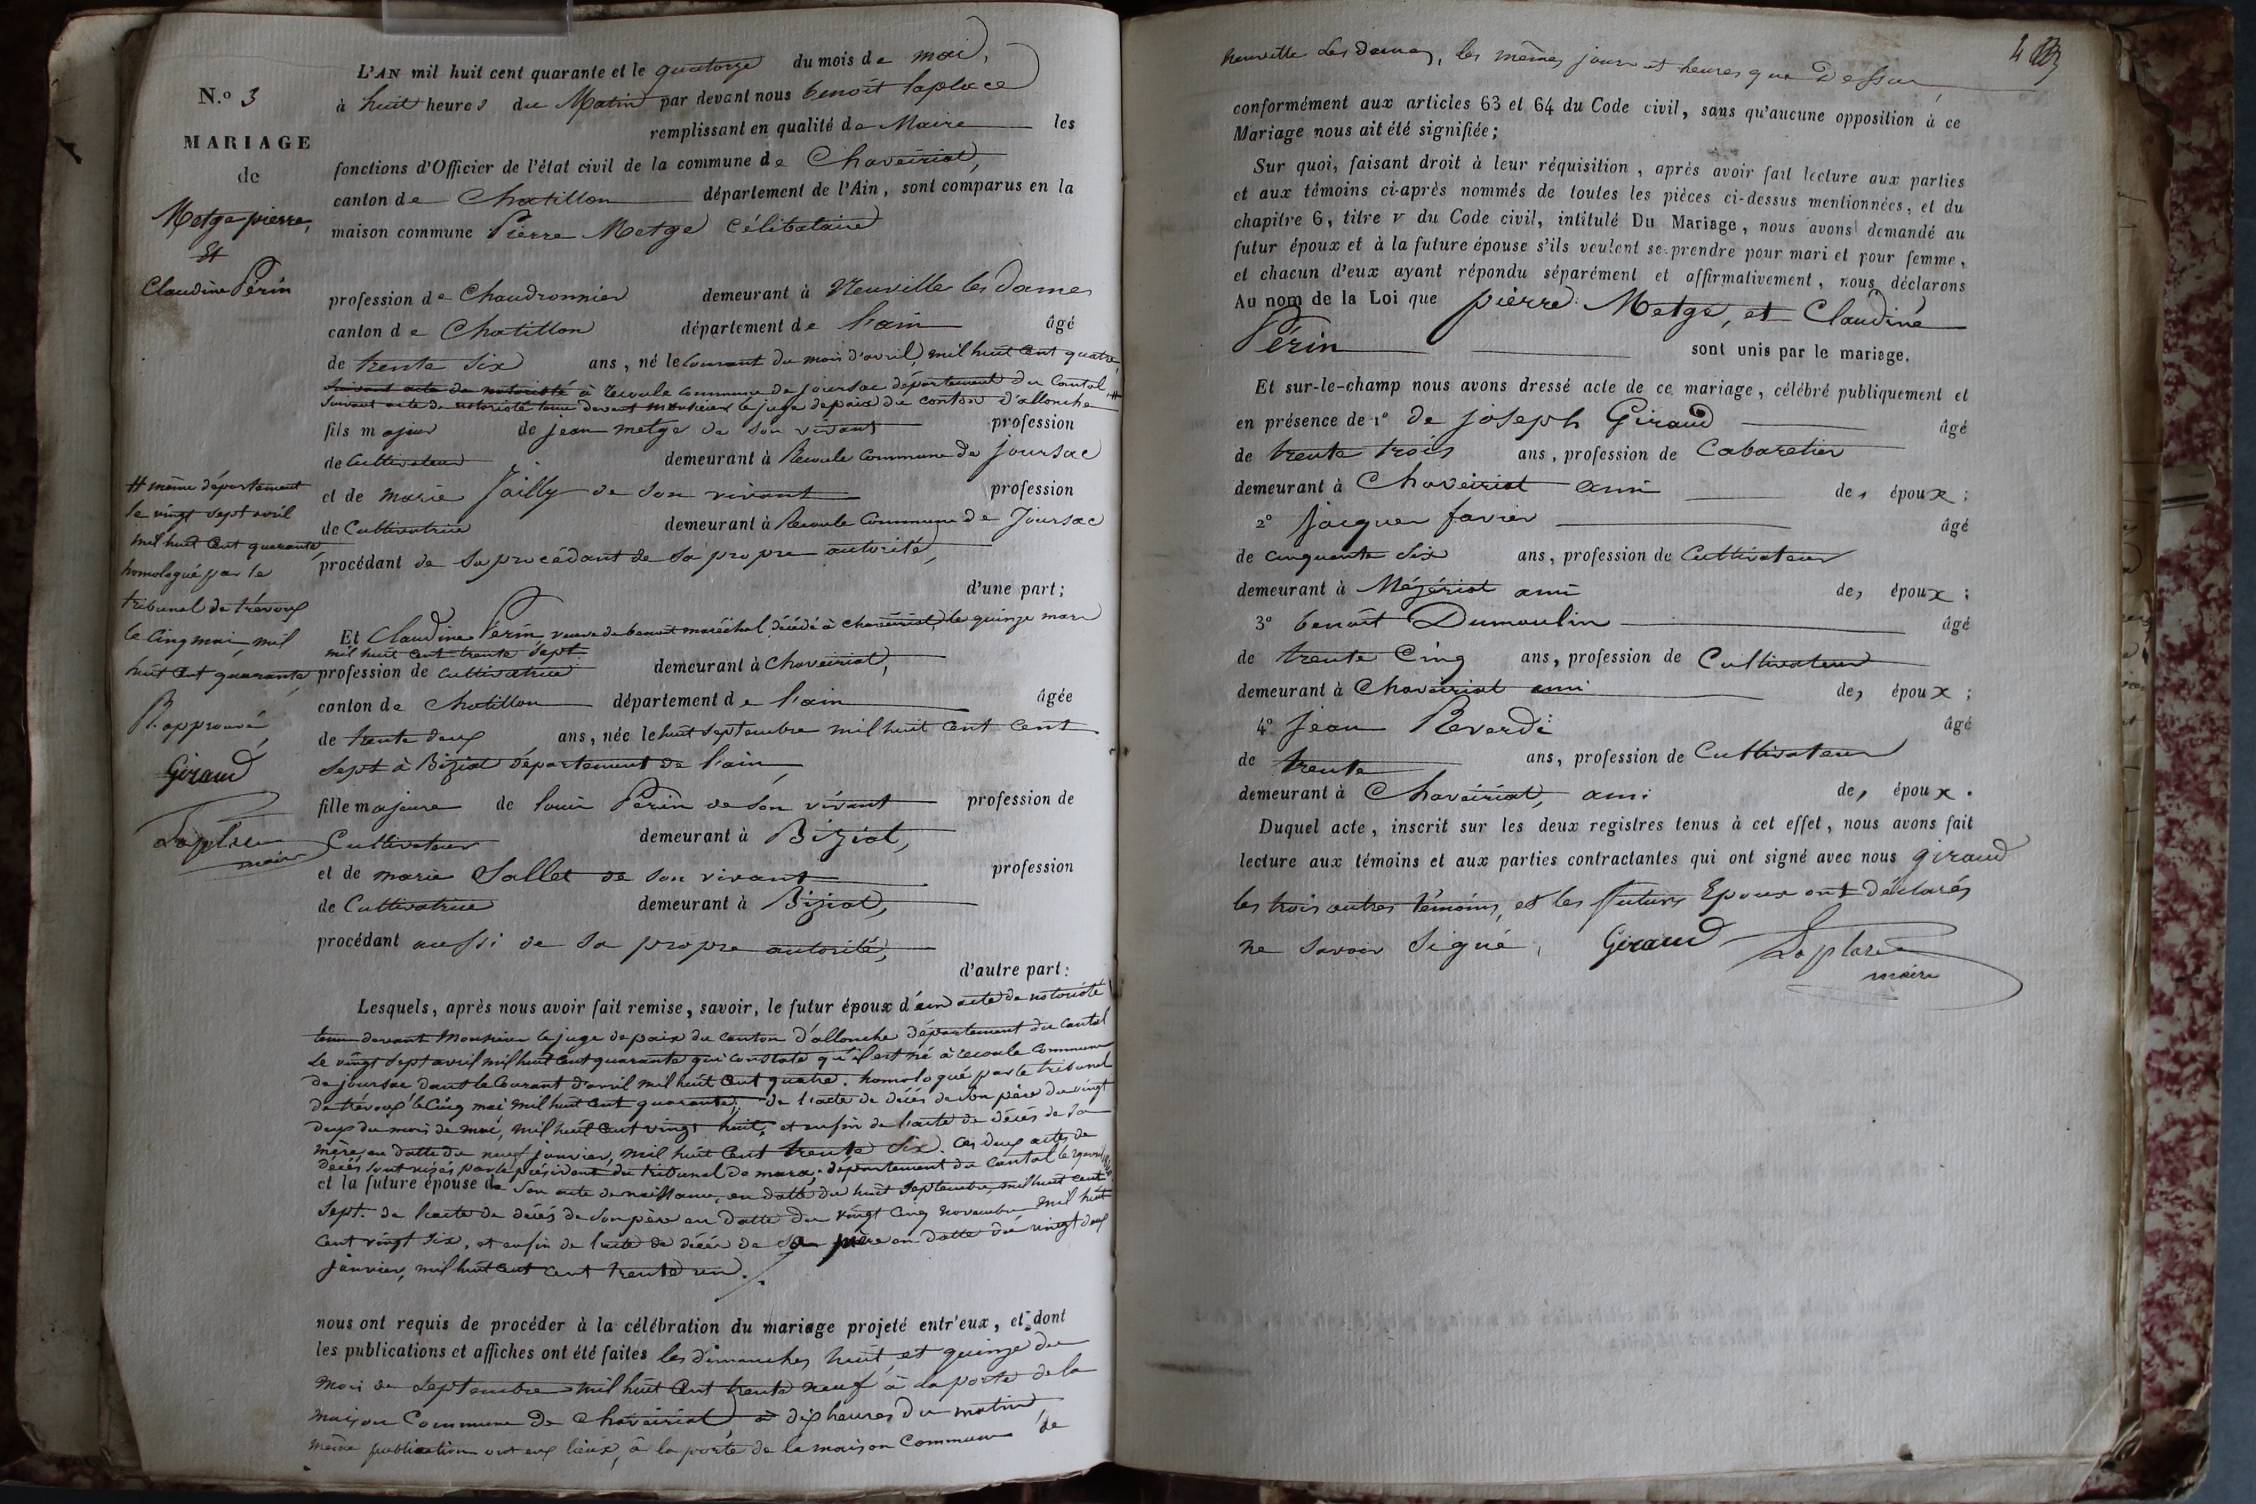 N.º 3
MARIAGE
de
Metge pierre,
Et
Claudine Périn
L'AN mil huit cent quarante et le quatorze du mois de mai,
à huit heures du Matin par devant nous benoît laplace
remplissant en qualité de Maire les
fonctions d'Officier de l'état civil de la commune de Chaveiriat,
canton de Chatillon département de l'Ain, sont comparus en la
maison commune Pierre Metge Célibataire
profession de Chaudronnier demeurant à Neuville les dames
canton de Chatillon département de l'ain âgé
de trente six ans, né le courant du mois d'avril, mil huit cent quatre,
suivant acte de notoriété à recoule commune de joursac département du Cantal
suivant acte de notoriété tenu devant Monsieur le juge de paix du canton d'allanche #
fils majeur de jean metge de son vivant profession
de Cultivateur demeurant à Recoule commune de Joursac
et de marie Jailly de son vivant profession
de Cultivatrice demeurant à Recoule Commune de Joursac
procédant de sa procédant de sa propre autorité,
d'une part;
# même département
le vingt sept avril
mil huit cent quarante,
homologué par le
tribunal de trévoux
le cinq mai, mil
huit cent quarante,
R. approuvé,
Giraud
Laplace
maire
Et Claudine Périn, veuve de benoit maréchal, décédé à chaveiriat, le quinze mars
mil huit cent trente sept.
profession de cultivatrice demeurant à Chaveiriat,
canton de Chatillon département de l'ain âgée
de trente deux ans, née le huit septembre mil huit cent cent
sept à Biziat département de l'ain,
fille majeure de louis Périn de son vivant profession de
Cultivateur demeurant à Biziat,
et de marie Sallet de son vivant profession
de Cultivatrice demeurant à Biziat,
procédant aussi de sa propre autorité,
d'autre part:
Lesquels, après nous avoir fait remise, savoir, le futur époux d'un acte de notoriété
tenu devant Monsieur le juge de paix du canton d'allanche département du cantal
le vingt sept avril mil huit cent quarante qui constate qu'il est né à recoule commune
de joursac dans le courant d'avril mil huit cent quatre. homologué par le tribunal
de trévoux le cinq mai mil huit cent quarante; de l'acte de décès de son père du vingt
deux du mois de mai, mil huit cent vingt huit, et enfin de l'acte de décès de sa
mère en datte du neuf janvier, mil huit cent trente six. ces deux actes de
décès sont visés par le président du tribunal de murat, département du cantal le
et la future épouse de son acte de naissance, en datte du huit septembre, mil huit cent
sept. de l'acte de décès de son père en datte du vingt cinq novembre mil huit
cent vingt six, et enfin de l'acte de décès de sa mère en datte du vingt deux
janvier, mil huit cent cent trente un.
nous ont requis de procéder à la célébration du mariage projeté entr'eux, et dont
les publications et affiches ont été faites les dimanches huit, et quinze du
mois de septembre mil huit cent trente neuf à la porte de la
maison commune de Chaveiriat, à dix heures du matin,
même publication ont eux lieux, à la porte de la maison commune de
neuville les dames, les mêmes jours et heures que Dessus,
conformément aux articles 63 et 64 du Code civil, sans qu'aucune opposition à ce
Mariage nous ait été signifiée;
Sur quoi, faisant droit à leur réquisition, après avoir fait lecture aux parties
et aux témoins ci-après nommés de toutes les pièces ci-dessus mentionnées, et du
chapitre 6, titre V du Code civil, intitulé Du Mariage, nous avons demandé au
futur époux et à la future épouse s'ils veulent se prendre pour mari et pour femme,
et chacun d'eux ayant répondu séparément et affirmativement, nous déclarons
Au nom de la Loi que pierre Metge, et Claudine
Périn sont unis par le mariage.
Et sur-le-champ nous avons dressé acte de ce mariage, célébré publiquement et
en présence de 1º de joseph Giraud âgé
de trente trois ans, profession de Cabaretier
demeurant à Chaveiriat ami des époux;
2º Jacques favier âgé
de cinquante six ans, profession de Cultivateur
demeurant à Mézériat ami des époux;
3º benoît Dumoulin âgé
de trente Cinq ans, profession de Cultivateur
demeurant à Chaveiriat ami des époux;
4º Jean Reverdi âgé
de trente ans, profession de Cultivateur
demeurant à Chaveiriat, ami des époux.
Duquel acte, inscrit sur les deux registres tenus à cet effet, nous avons fait
lecture aux témoins et aux parties contractantes qui ont signé avec nous giraud
les trois autres témoins, et les futurs Epoux ont déclarés
ne savoir signé, Giraud Laplace
maire